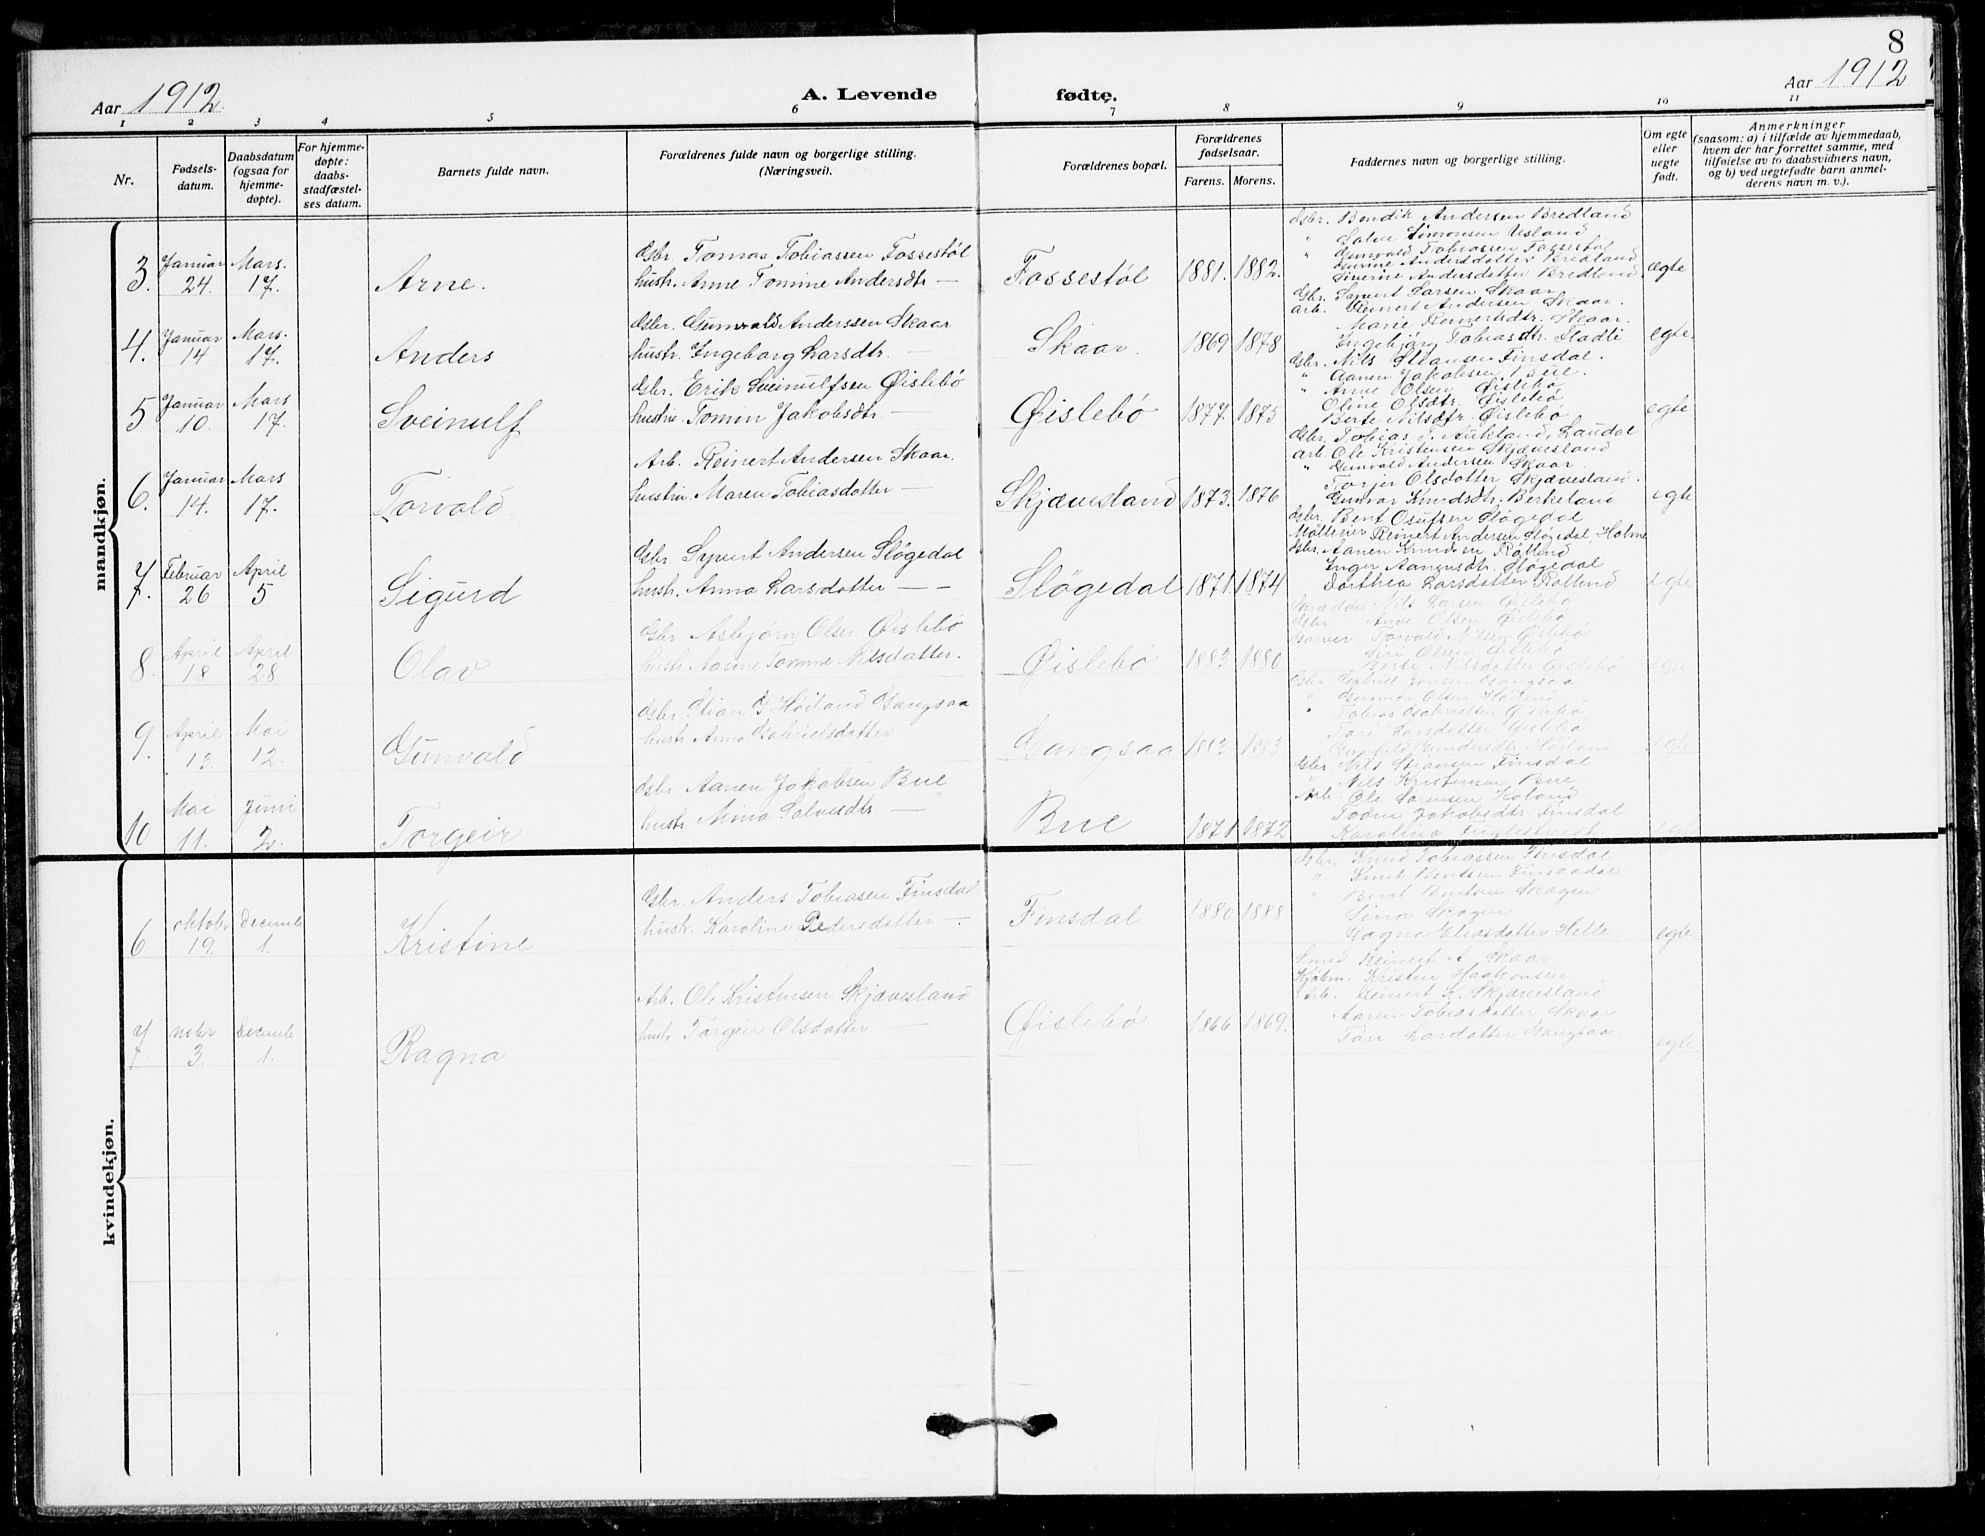 8
Aar 1912.
A. Levende fødte.
Aar 1912
1 2 3 4 5 6 7 8 9 10 11
Nr.
Fødsels-
datum.
Daabsdatum
(ogsaa for
hjemme-
døpte).
For hjemme-
døpte:
daabs-
stadfæstel-
ses datum.
Barnets fulde navn.
Forældrenes fulde navn og borgerlige stilling.
(Næringsvei).
Forældrenes bopæl.
Forældrenes
fødselsaar.
Farens. Morens.
Faddernes navn og borgerlige stilling.
Om egte
eller
uegte
født.
Anmerkninger
(saasom: a) i tilfælde av hjemmedaab,
hvem der har forrettet samme, med
tilføielse av to daabsvidners navn,
og b) ved uegtefødte barn anmel-
derens navn m. v.).
mandkjøn.
3. Januar 24. Mars. 17. Arne.
Gbr. Tomas Tobiassen Fossestøl
hustr. Anne Tomine Andersdtr —
Fossestøl 1881. 1882.
Gbr. Bendik Andersen Bredland
" Salve Simonsen Usland
" Gunvald Tobiassen Fossestøl
Gunne Andersdotter Bredland
Siverine Andersdotter Bredland
ægte
4. Januar 14 Mars. 17. Anders
Gbr. Gunvald Anderssen Skaar
hustr. Ingeborg Larsdtr. —
Skaar. 1869 1878
Gbr. Syvert Larsen Skaar
arb. Reinert Andersen Skaar.
Marie Reinertdtr. Skaar.
Ingebjørg Tobiasdtr. Stadli
egte.
5 Januar 10. Mars 17. Sveinulf
Gbr. Erik Sveinulfsen Øislebø
hustru. Tomin Jakobsdtr. —
Øislebø 1877. 1875
Gbr. Nils Stiansen Finsdal.
" Aanen Jakobsen Bue.
" Anve Olsen Øislebø
Oline Olsdtr. Øislebø
Berte Nilsdtr. Øislebø
egte
6. Januar 14. Mars 17. Torvald
Arb. Reinert Andersen Skaar.
hustru Maren Tobiasdotter —
Skjævesland 1873. 1876
Gbr. Tobias J. Aukland, Laudal
arb. Ole Kristensen Skjævesland
" Gunvald Andersen Skaar.
Torjer Olsdotter Skjævesland.
Gunvor Knudsdtr. Berkeland
egte
7. Februar 26 April 5 Sigurd
Gbr Syvert Andersen Sløgedal
hustr. Anna Larsdotter — —
Sløgedal 1871. 1874
Gbr. Bent Osufsen Sløgedal
Mølleeier Reinert Andersen Sløgedal, Holme
Gbr. Aanen Knudsen Røllend
Inger Aanensdtr. Sløgedal
Dorthea Larsdotter Røllend
egte
8. April 18 April 28 Olav
Gbr. Asbjørn Olsen Øislebø
hustr. Aasine Tomine Nilsdatter.
Øislebø 1883 1880
Skrædder Nils Larsen Øislebø
Gbr. Anve Olsen Øislebø
Garver Torvald Nilsen Øislebø
Siri Olsen Øislebø
Berte Nilsdotter Øislebø
egte
9. April 13. Mai 12. Gunvald
Gbr. Stian G Høiland Gangsaa
hustr. Anna Gabrielsdotter
Gangsaa 1883 1883
Gbr Gabriel Jensen Gangsaa
" Gunder Olsen Høiland
" Tobias Gabrielsen Øislebø
Tori Larsdotter Øislebø
Gunhild Gundersdtr. Høiland
egte
10 Mai 11. Juni 2. Torgeir
Gbr. Aanen Jakobsen Bue
hustr Mina Salvesdtr. —
Bue 1871 1872
Gbr. Nils Stiansen Finsdal
" Nils Kristensen Bue
Arb. Ole Sørensen Høland
Todne Jakobsdtr. Finsdal
Karolina
egte
kvindekjøn.
6 oktober 19. December 1. Kristine
Gbr. Anders Tobiasen Finsdal
hustr. Karoline Pedersdotter —.
Finsdal 1880 1888
Gbr. Knud Tobiassen Finsdal
" Knut Bentsen Finsaadal
" Bent Bentsen Skogen
Sina Skogen
Gagna Eliasdotter Helle.
egte
7. novbr. 3. December 1. Ragna
Arb. Ole Kristensen Skjævesland
hustr Torgeir Olsdatter —
Øislebø 1866 1869.
Smed Reinert A. Skaar.
Kjøbm. Kristen Haakonsen
Arb. Reinert K. Skjævesland
Aanen Tobiasdotter Skaar
Tori Larsdotter Gangsaa.
egte